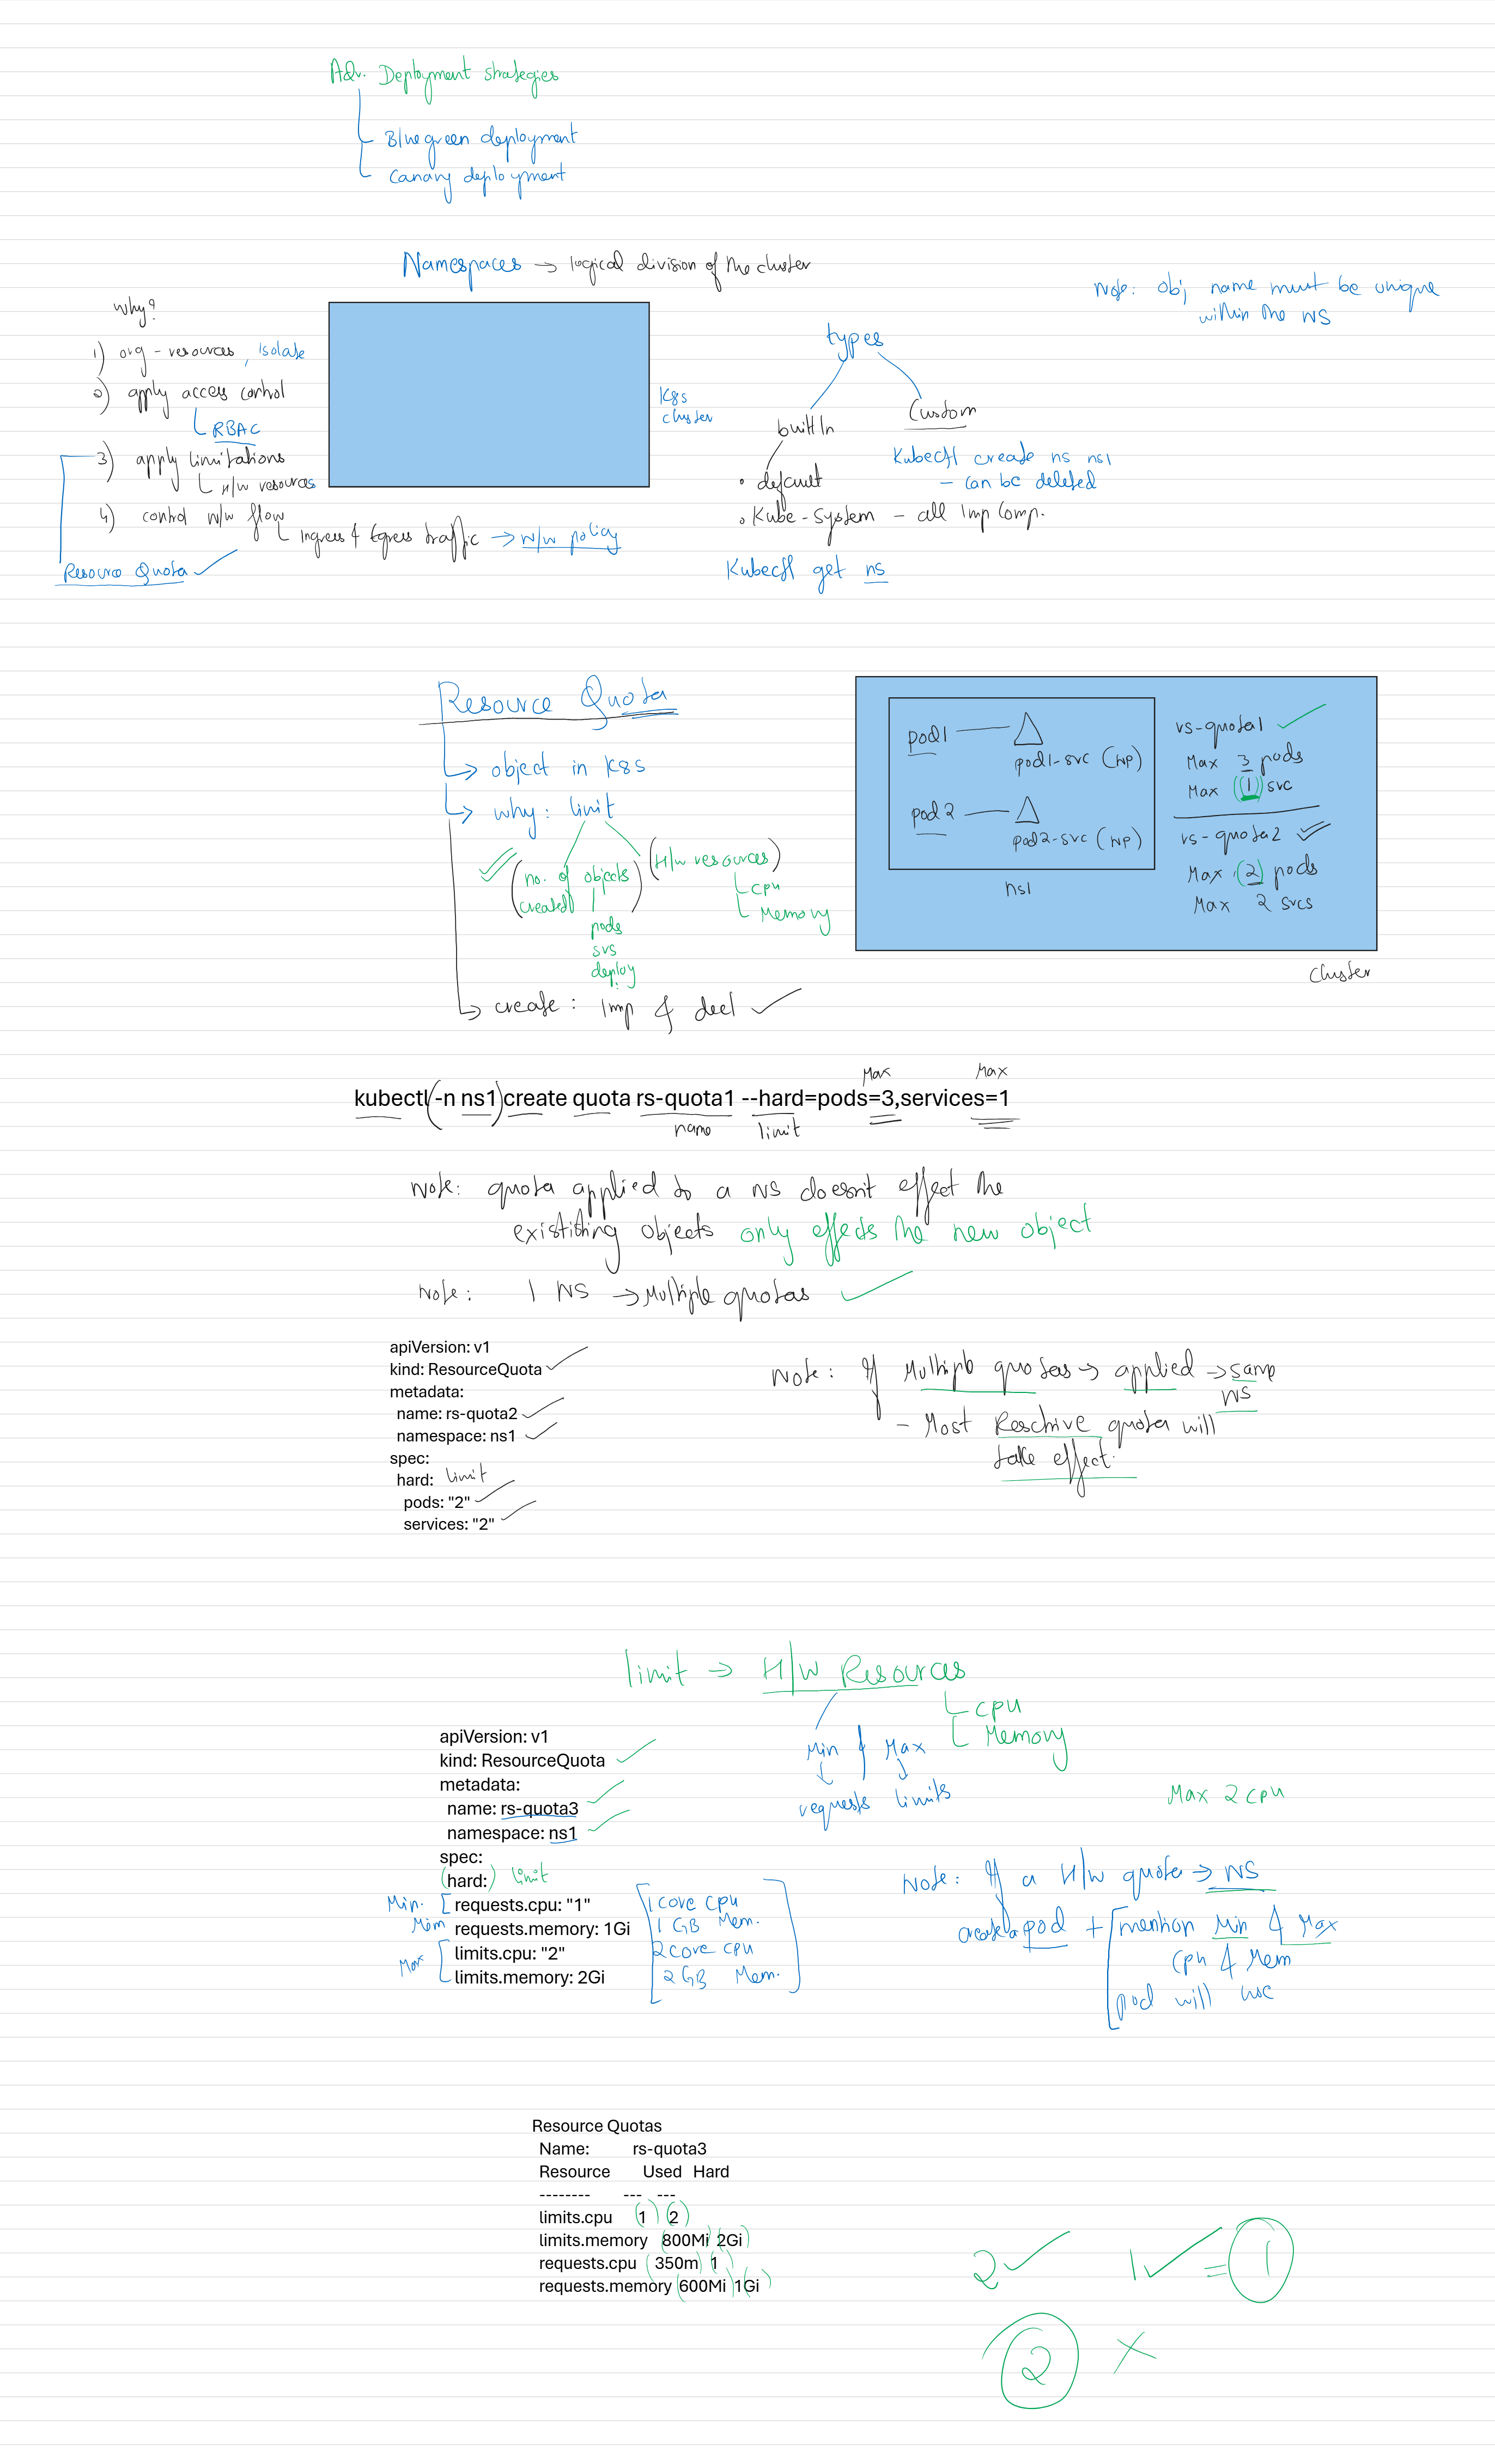 Adv. Deployment strategies
Bluegreen deployment
Canary deployment
Namespaces → logical division of the cluster
Note: obj name must be unique
within the NS
why?
1) org - resources, isolate
2) apply access control
RBAC
3) apply limitations
H/w resources
4) control N/w flow
Ingress & Egress traffic → N/w policy
Resource Quota
K8s
cluster
types
built In
Custom
• default
• Kube-system - all Imp Comp.
Kubectl create ns ns1
- can be deleted
Kubectl get ns
Resource Quota
→ object in K8s
→ why: limit
(no. of objects
created)
pods
svs
deploy
(H/w resources)
CPU
Memory
→ create: Imp & decl
pod1
pod1-svc (NP)
pod2
pod2-svc (NP)
ns1
rs-quota1
Max 3 pods
Max (1) svc
rs-quota2
Max (2) pods
Max 2 svcs
cluster
Max Max
kubectl (-n ns1) create quota rs-quota1 --hard=pods=3,services=1
name limit
Note: quota applied to a NS doesn't effect the
existithing objects only effects the new object
Note: 1 NS → Multiple quotas
apiVersion: v1
kind: ResourceQuota
metadata:
name: rs-quota2
namespace: ns1
spec:
hard: limit
pods: "2"
services: "2"
Note: If Multiple quotas → applied → same
NS
- Most Resctive quota will
take effect.
limit → H/W Resources
CPU
Memory
Min & Max
requests limits
Max 2 cpu
apiVersion: v1
kind: ResourceQuota
metadata:
name: rs-quota3
namespace: ns1
spec:
(hard:) limit
Min. requests.cpu: "1" 1 core cpu
Mim requests.memory: 1Gi 1 GB Mem.
Max limits.cpu: "2" 2 core cpu
limits.memory: 2Gi 2 GB Mem.
Note: If a H/w quota → NS
create a pod + mention Min & Max
Cpu & Mem
pod will use
Resource Quotas
Name: rs-quota3
Resource Used Hard
-------- --- ---
limits.cpu (1) (2)
limits.memory (800Mi) 2Gi)
requests.cpu (350m) (1)
requests.memory (600Mi) 1Gi)
2 1 = 1
2 ×